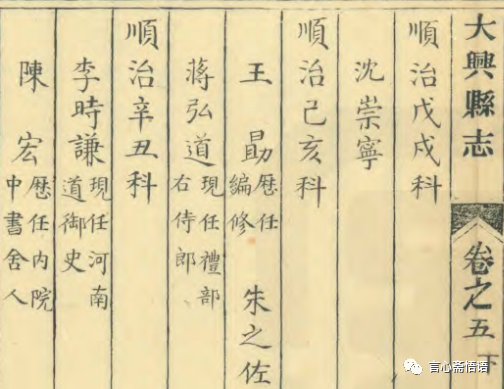 大興縣志 卷之五下
順治戊戌科
沈崇寧
順治己亥科
王勗 歷任編修 朱之佐
蔣弘道 現任禮部右侍郎
順治辛丑科
李時謙 現任河南道御史
陳宏 歷任內院中書舍人
言心斋悟语